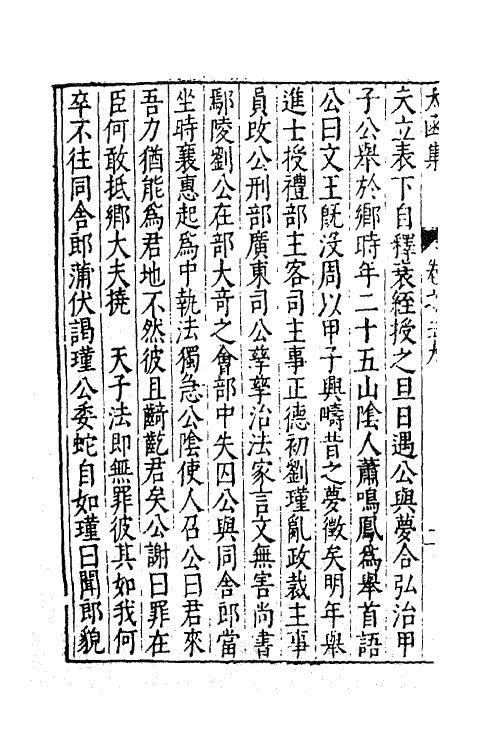 太函集 卷之三十九
夫立表下自釋衰絰授之旦日遇公與夢合弘治甲
子公舉於鄉時年二十五山陰人蕭鳴鳳為舉首語
公曰文王旣沒周以甲子興疇昔之夢徵矣明年舉
進士授禮部主客司主事正德初劉瑾亂政裁主事
員攺公刑部廣東司公孳孳治法家言文無害尚書
鄢陵劉公在部大竒之會部中失囚公與同舍郎當
坐時襄惠起為中執法獨急公陰使人召公曰君來
吾力猶能為君地不然彼且齮齕君矣公謝曰罪在
臣何敢抵鄉大夫撓 天子法即無罪彼其如我何
卒不往同舍郎蒲伏謁瑾公委蛇自如瑾曰聞郎貌